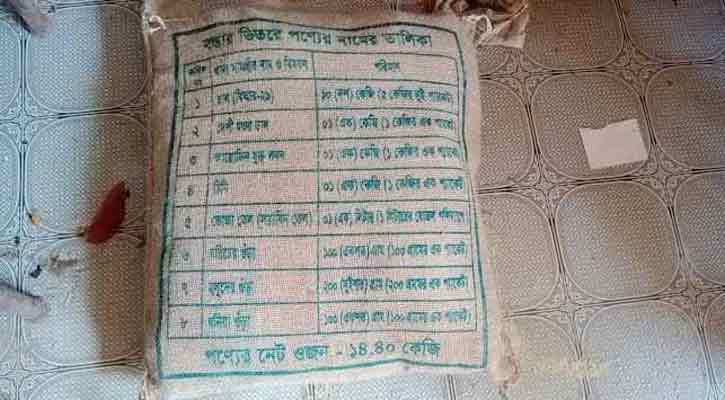 বস্তার ভিতরে পণ্যের নামের তালিকা
ক্রমিক নং খাদ্য সামগ্রীর নাম ও বিবরণ পরিমাণ
১ চাল ১০ (দশ) কেজি (৫ কেজির দুই প্যাকেট)
২ দেশী মশুর ডাল ০১ (এক) কেজি (১ কেজির এক প্যাকেট)
৩ আয়োডিন যুক্ত লবন ০১ (এক) কেজি (১ কেজির এক প্যাকেট)
৪ চিনি ০১ (এক) কেজি (১ কেজির এক প্যাকেট)
৫ ভোজ্য তেল (সয়াবিন তেল) ০১ (এক) লিটার (১ লিটারের বোতল
৬ মরিচের গুঁড়া ১০০ (একশত) গ্রাম (১০০ গ্রামের এক প্যাকেট)
৭ হলুদের গুঁড়া ২০০ (দুইশত) গ্রাম (২০০ গ্রামের এক প্যাকেট)
৮ ধনিয়া গুঁড়া ১০০ (একশত) গ্রাম (১০০ গ্রামের এক প্যাকেট)
পণ্যের নেট ওজন - ১৪.৪০ কেজি